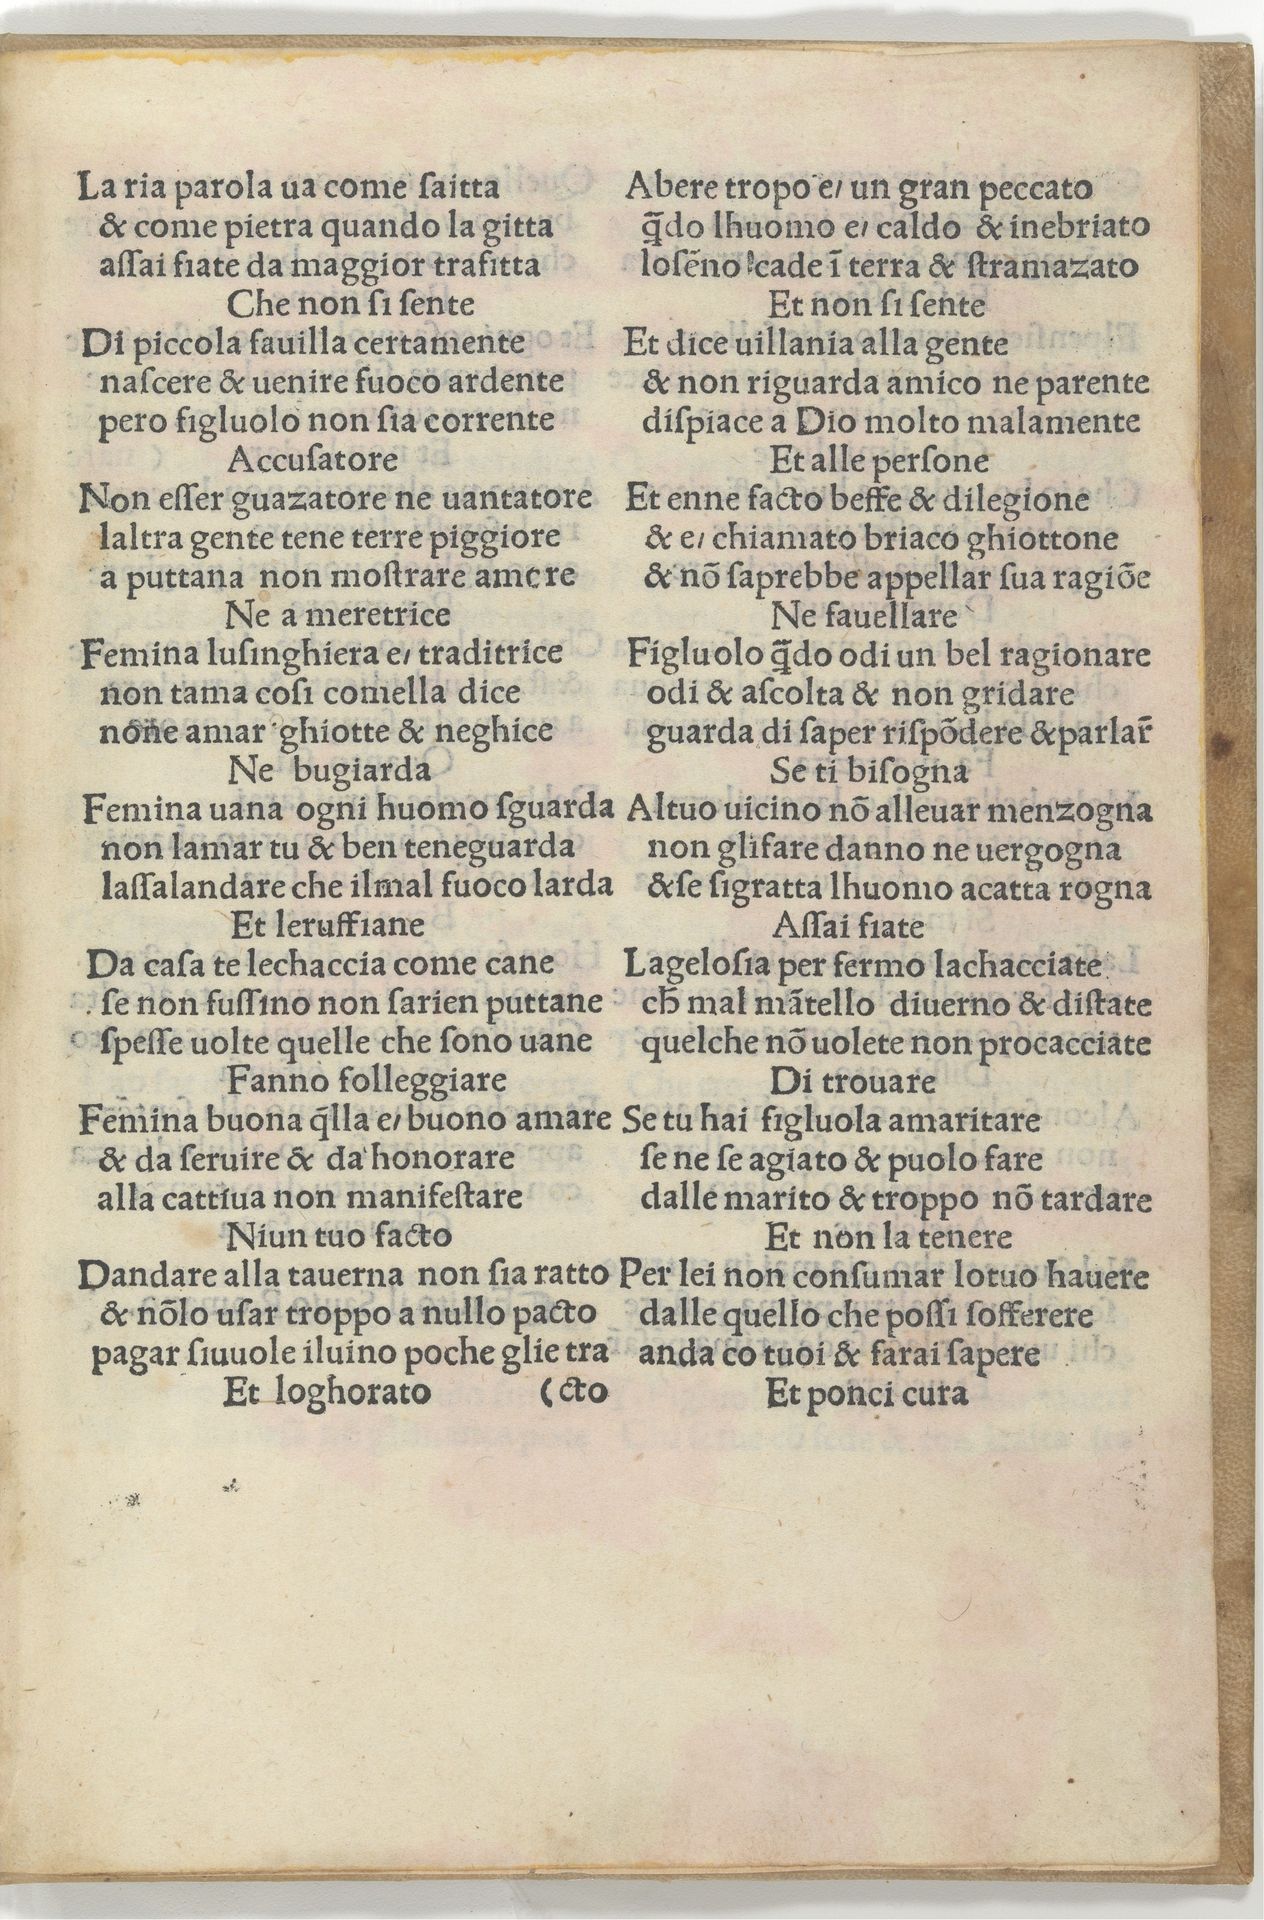 La ria parola ua come ſaitta
& come pietra quando la gitta
aſſai fiate da maggior trafitta
Che non ſi ſente
Di piccola fauilla certamente
naſcere & uenire fuoco ardente
pero figluolo non ſia corrente
Accuſatore
Non eſſer guazatore ne uantatore
laltra gente tene terre piggiore
a puttana non moſtrare amore
Ne a meretrice
Femina luſinghiera e, traditrice
non tama coſi comella dice
none amar ghiotte & neghice
Ne bugiarda
Femina uana ogni huomo ſguarda
non lamar tu & ben teneguarda
laſſalandare che ilmal fuoco larda
Et leruffiane
Da caſa te lechaccia come cane
ſe non fuſſino non ſarien puttane
ſpeſſe uolte quelle che ſono uane
Fanno folleggiare
Femina buona q̃lla e, buono amare
& da ſeruire & da honorare
alla cattiua non manifeſtare
Niun tuo facto
Dandare alla tauerna non ſia ratto
& nõlo uſar troppo a nullo pacto
pagar ſiuuole iluino poche glie tra
Et loghorato (cto
Abere tropo e, un gran peccato
q̃do lhuomo e, caldo & inebriato
loſẽno cade ĩ terra & ſtramazato
Et non ſi ſente
Et dice uillania alla gente
& non riguarda amico ne parente
diſpiace a Dio molto malamente
Et alle perſone
Et enne facto beffe & dilegione
& e, chiamato briaco ghiottone
& nõ ſaprebbe appellar ſua ragiõe
Ne fauellare
Figluolo q̃do odi un bel ragionare
odi & aſcolta & non gridare
guarda di ſaper riſpõdere &parlar̃
Se ti biſogna
Altuo uicino nõ alleuar menzogna
non glifare danno ne uergogna
&ſe ſigratta lhuomo acatta rogna
Aſſai fiate
Lageloſia per fermo lachacciate
ch̃ mal mãtello diuerno & diſtate
quelche nõ uolete non procacciate
Di trouare
Se tu hai figluola amaritare
ſe ne ſe agiato & puolo fare
dalle marito & troppo nõ tardare
Et non la tenere
Per lei non conſumar lotuo hauere
dalle quello che poſſi ſofferere
anda co tuoi & farai ſapere
Et ponci cura